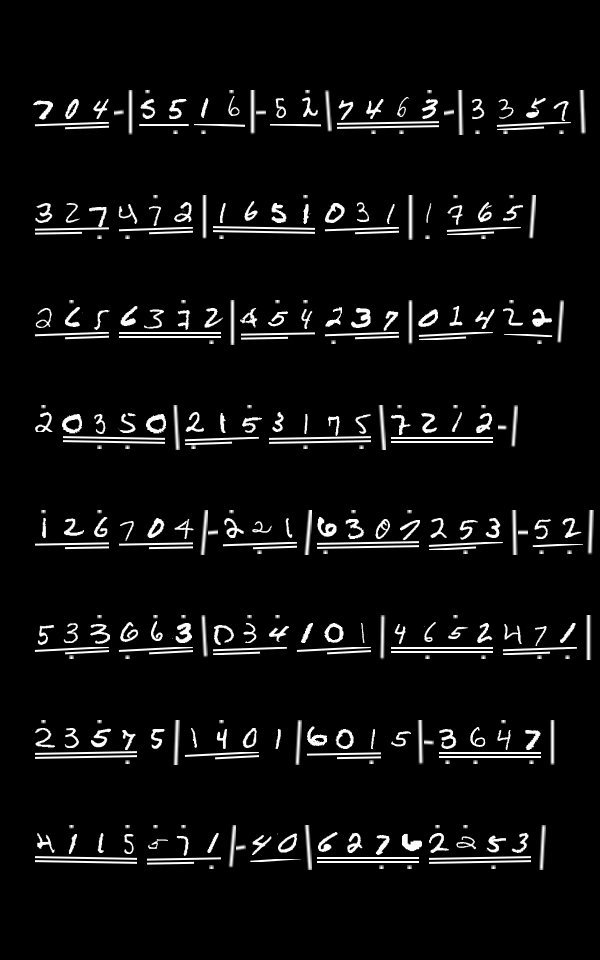 704-|5516|-52|7463-|3357|
327472|1651031|1765|
2656372|454237|01422|
20350|2153175|7212-|
126704|-221|6307253|-52|
533663|034101|4652471|
23575|1401|6015|-3647|
4115571|-40|62762253|